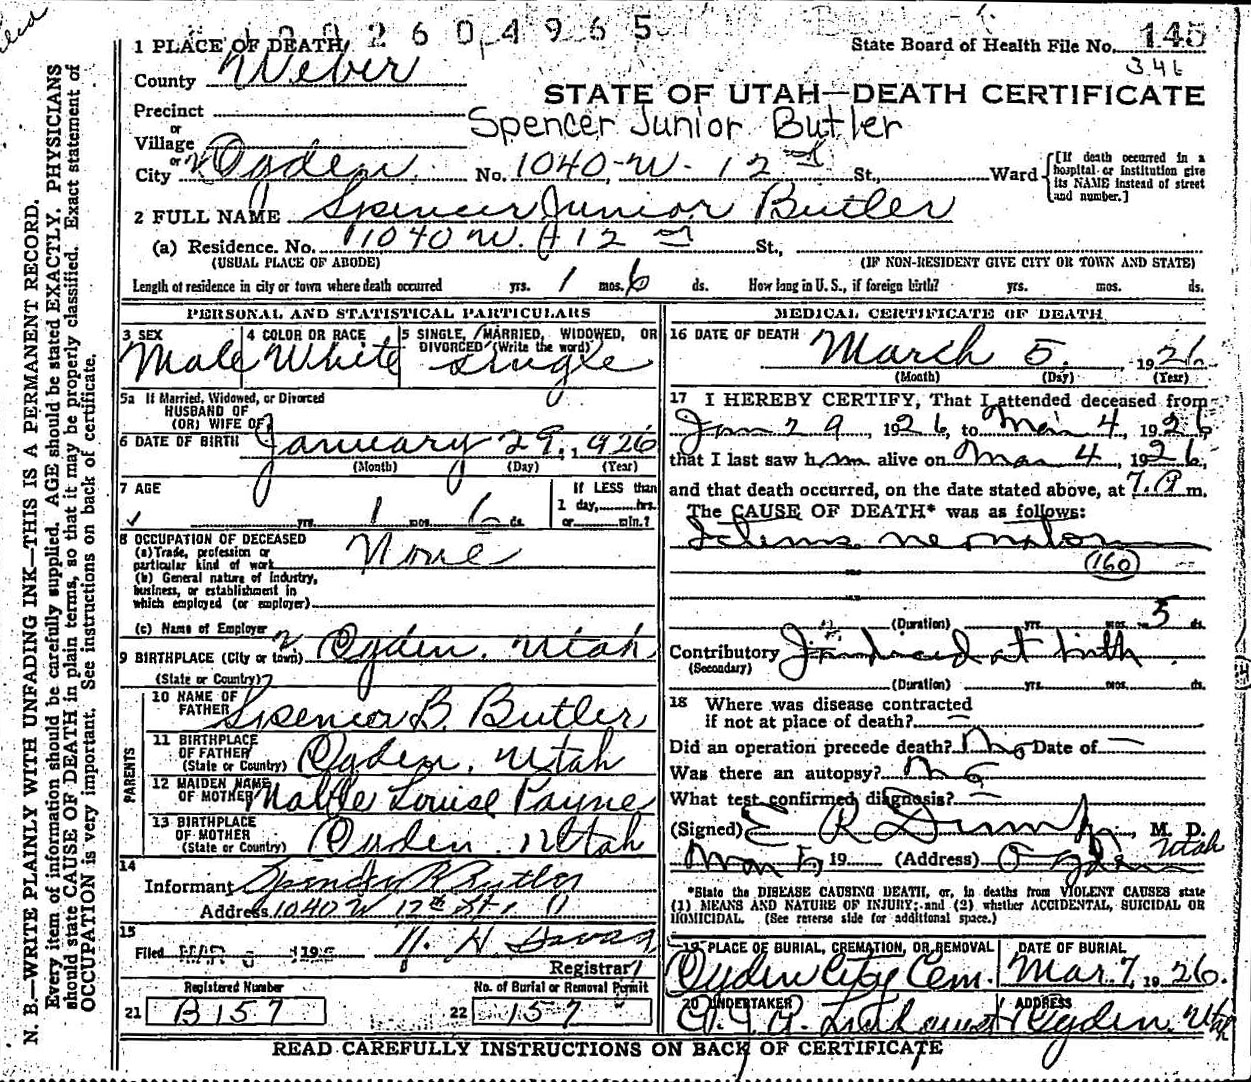 1 0 0 2 6 0 4 9 6 5
1 PLACE OF DEATH
State Board of Health File No. 145
County Weber
346
STATE OF UTAH—DEATH CERTIFICATE
Precinct
Spencer Junior Butler
or
Village
or
City Ogden No. 1040 W. 12 St., Ward
[If death occurred in a hospital or institution give its NAME instead of street and number.]
2 FULL NAME Spencer Junior Butler
(a) Residence. No. 1040 W. 12 St.,
(USUAL PLACE OF ABODE) (IF NON-RESIDENT GIVE CITY OR TOWN AND STATE)
Length of residence in city or town where death occurred yrs. 1 mos. 6 ds. How long in U. S., if foreign birth? yrs. mos. ds.
PERSONAL AND STATISTICAL PARTICULARS
3 SEX Male
4 COLOR OR RACE White
5 SINGLE, MARRIED, WIDOWED, OR DIVORCED (Write the word) Single
5a If Married, Widowed, or Divorced
HUSBAND OF
(OR) WIFE OF
6 DATE OF BIRTH January 29, 1926
(Month) (Day) (Year)
7 AGE
If LESS than
1 day, hrs.
yrs. 1 mos. 6 ds. or min.?
8 OCCUPATION OF DECEASED
(a) Trade, profession or particular kind of work None
(b) General nature of industry, business, or establishment in which employed (or employer)
(c) Name of Employer
9 BIRTHPLACE (City or town) Ogden, Utah
(State or Country)
PARENTS
10 NAME OF FATHER Spencer B. Butler
11 BIRTHPLACE OF FATHER (State or Country) Ogden, Utah
12 MAIDEN NAME OF MOTHER Louise Payne
13 BIRTHPLACE OF MOTHER (State or Country) Ogden, Utah
14
Informant Butler
Address 1040 W 12th St.
15
Filed MAR 192 N. H.
Registrar
Registered Number No. of Burial or Removal Permit
21 B 157 22 157
MEDICAL CERTIFICATE OF DEATH
16 DATE OF DEATH March 5, 1926
(Month) (Day) (Year)
17 I HEREBY CERTIFY, That I attended deceased from
Jan 29, 1926, to Mar 4, 1926,
that I last saw him alive on Mar 4, 1926,
and that death occurred, on the date stated above, at 7. m.
The CAUSE OF DEATH* was as follows:
Icterus neonator
160
(Duration) yrs. mos. 5 ds.
Contributory Jaundiced at birth
(Secondary)
(Duration) yrs. mos. ds.
18 Where was disease contracted
if not at place of death? —
Did an operation precede death? No Date of —
Was there an autopsy? no
What test confirmed diagnosis? —
(Signed) E R M. D.
Mar 5, 19 (Address) Ogden Utah
*State the DISEASE CAUSING DEATH, or, in deaths from VIOLENT CAUSES state
(1) MEANS AND NATURE OF INJURY; and (2) whether ACCIDENTAL, SUICIDAL OR
HOMICIDAL. (See reverse side for additional space.)
19 PLACE OF BURIAL, CREMATION, OR REMOVAL DATE OF BURIAL
Ogden City Cem. Mar. 7, 1926.
20 UNDERTAKER ADDRESS
Ogden, Utah
READ CAREFULLY INSTRUCTIONS ON BACK OF CERTIFICATE
N. B.—WRITE PLAINLY WITH UNFADING INK—THIS IS A PERMANENT RECORD.
Every item of information should be carefully supplied. AGE should be stated EXACTLY. PHYSICIANS
should state CAUSE OF DEATH in plain terms, so that it may be properly classified. Exact statement of
OCCUPATION is very important. See instructions on back of certificate.